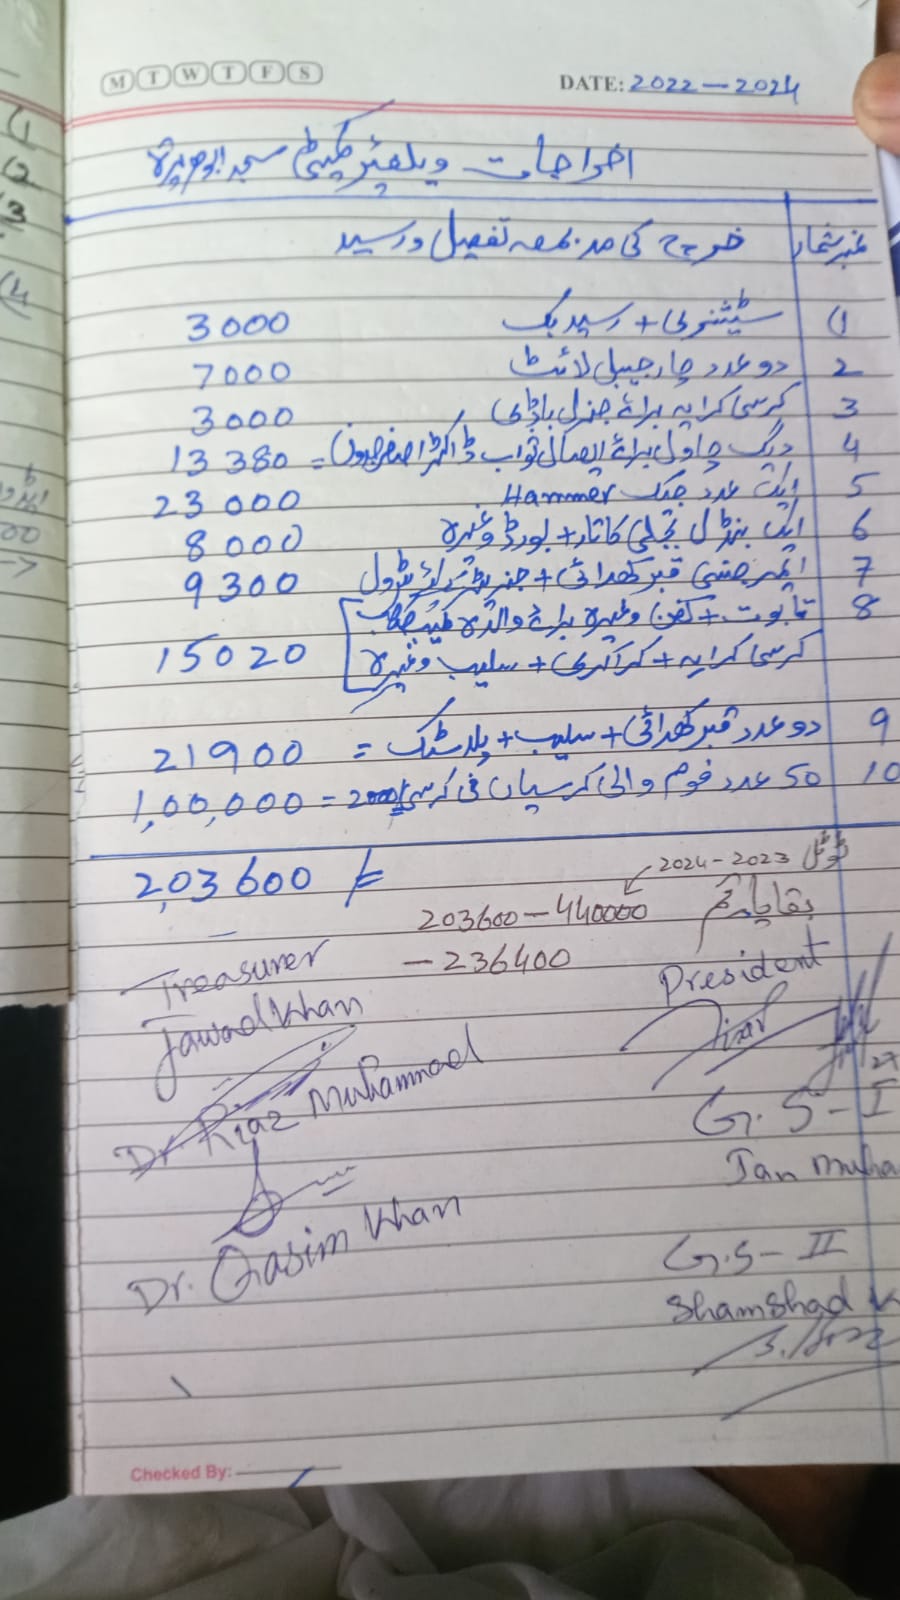 M T W T F S
DATE: 2022 — 2024
اخراجات ویلفئیر کمیٹی مسجد
نمبر شمار خرچ کی مد بمعہ تفصیل و رسید
1) سٹیشنری + رسید بک 3000
2 دو عدد چارجیبل لائٹ 7000
3 کرسی کرایہ برائے جنرل باڈی 3000
4 دیگ چاول برائے ایصال ثواب ڈاکٹر اصغر = 13380
5 ایک عدد جیک Hammer 23000
6 ایک بنڈل بجلی کا تار + بورڈ وغیرہ 8000
7 ایمرجنسی قبر کھدائی + جنریٹر پٹرول 9300
8 تابوت + کفن وغیرہ برائے والدہ
کرسی کرایہ + کراکری + سلیب وغیرہ 15020
9 دو عدد قبر کھدائی + سلیب + پلاسٹک = 21900
10 50 عدد فوم والی کرسیاں فی کرسی 2000 = 1,00,000
203600/=
ٹوٹل 2023-2024
بقایا رقم 203600 — 440000
— 236400
Treasurer President
Jawad Khan
Dr Riaz Muhammad
G. S - I
Jan Muha
Dr. Qasim Khan
G.S - II
Shamshad K
Checked By: